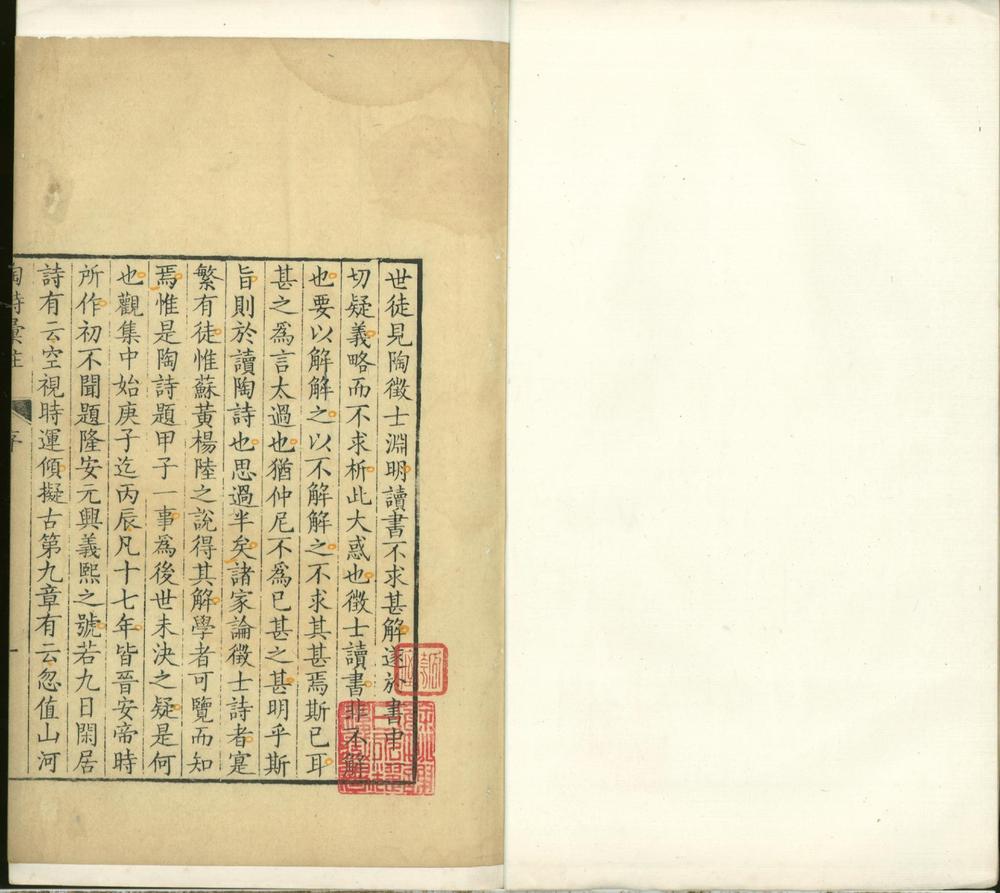 世徒見陶徵士淵明讀書不求甚解遂於書中
切疑義略而不求析此大惑也徵士讀書非不解
也要以解解之以不解解之不求其甚焉斯已耳
甚之爲言太過也猶仲尼不爲已甚之甚明乎斯
旨則於讀陶詩也思過半矣諸家論徵士詩者寔
繁有徒惟蘇黃楊陸之說得其解學者可覽而知
焉惟是陶詩題甲子一事爲後世未決之疑是何
也觀集中始庚子迄丙辰凡十七年皆晉安帝時
所作初不聞題隆安元興義熙之號若九日閑居
詩有云空視時運傾擬古第九章有云忽值山河
陶詩彙註 序 一